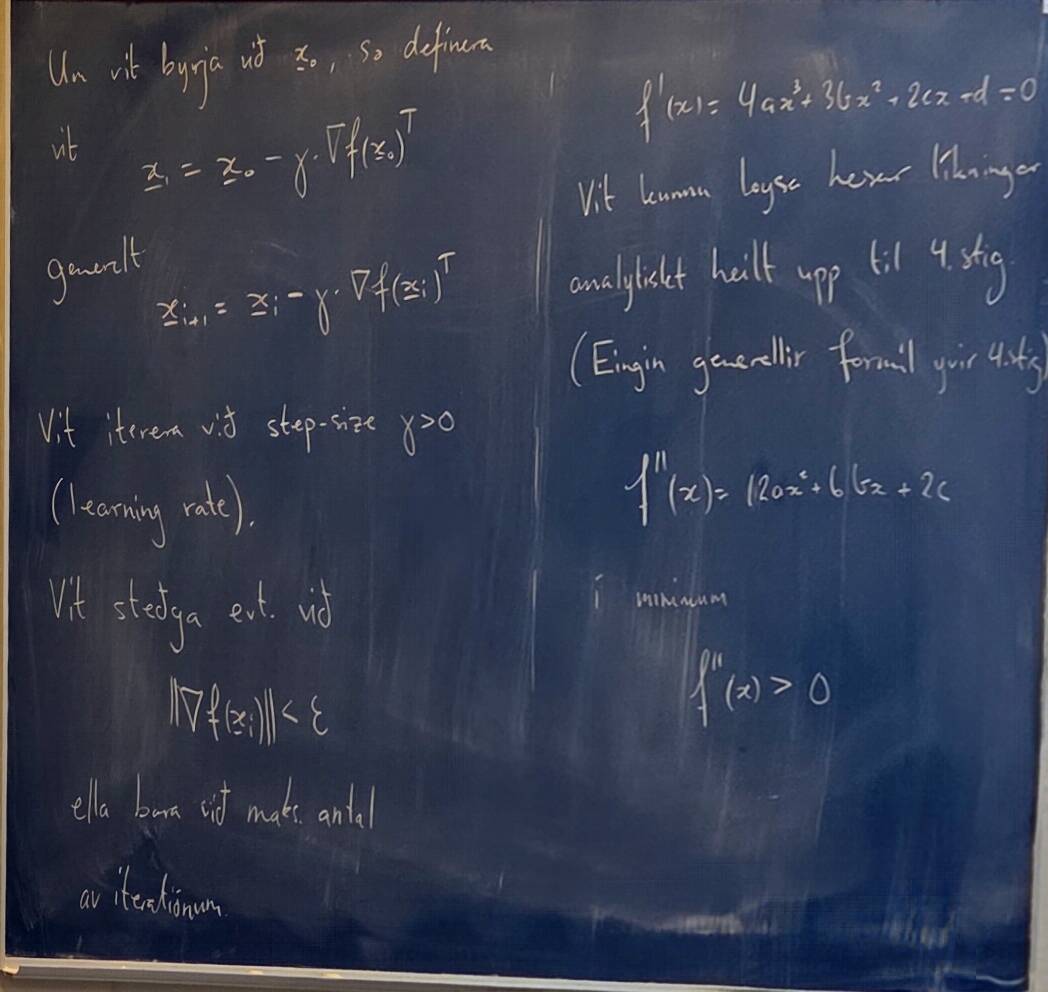 Um vit byrja við x₀, so definera
vit
x₁ = x₀ - γ · ∇f(x₀)ᵀ
generelt
xᵢ₊₁ = xᵢ - γ · ∇f(xᵢ)ᵀ
Vit iterera við step-size γ>0
(learning rate).
Vit steðga evt. við
||∇f(xᵢ)|| < ε
ella bara við maks. antal
av iteratiónum.
f'(x) = 4ax³ + 3bx² + 2cx + d = 0
Vit kunnu loysa hesar líkningar
analytiskt heilt upp til 4. stig.
(Eingin generellir formil yvir 4. stig)
f''(x) = 12ax² + 6bx + 2c
í minimum
f''(x) > 0